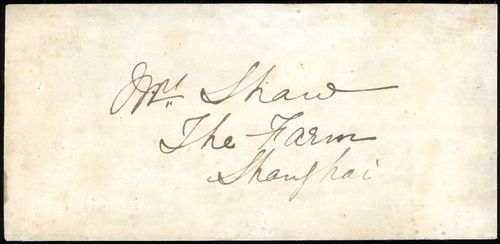 Mr. Shaw
The Farm
Shanghai